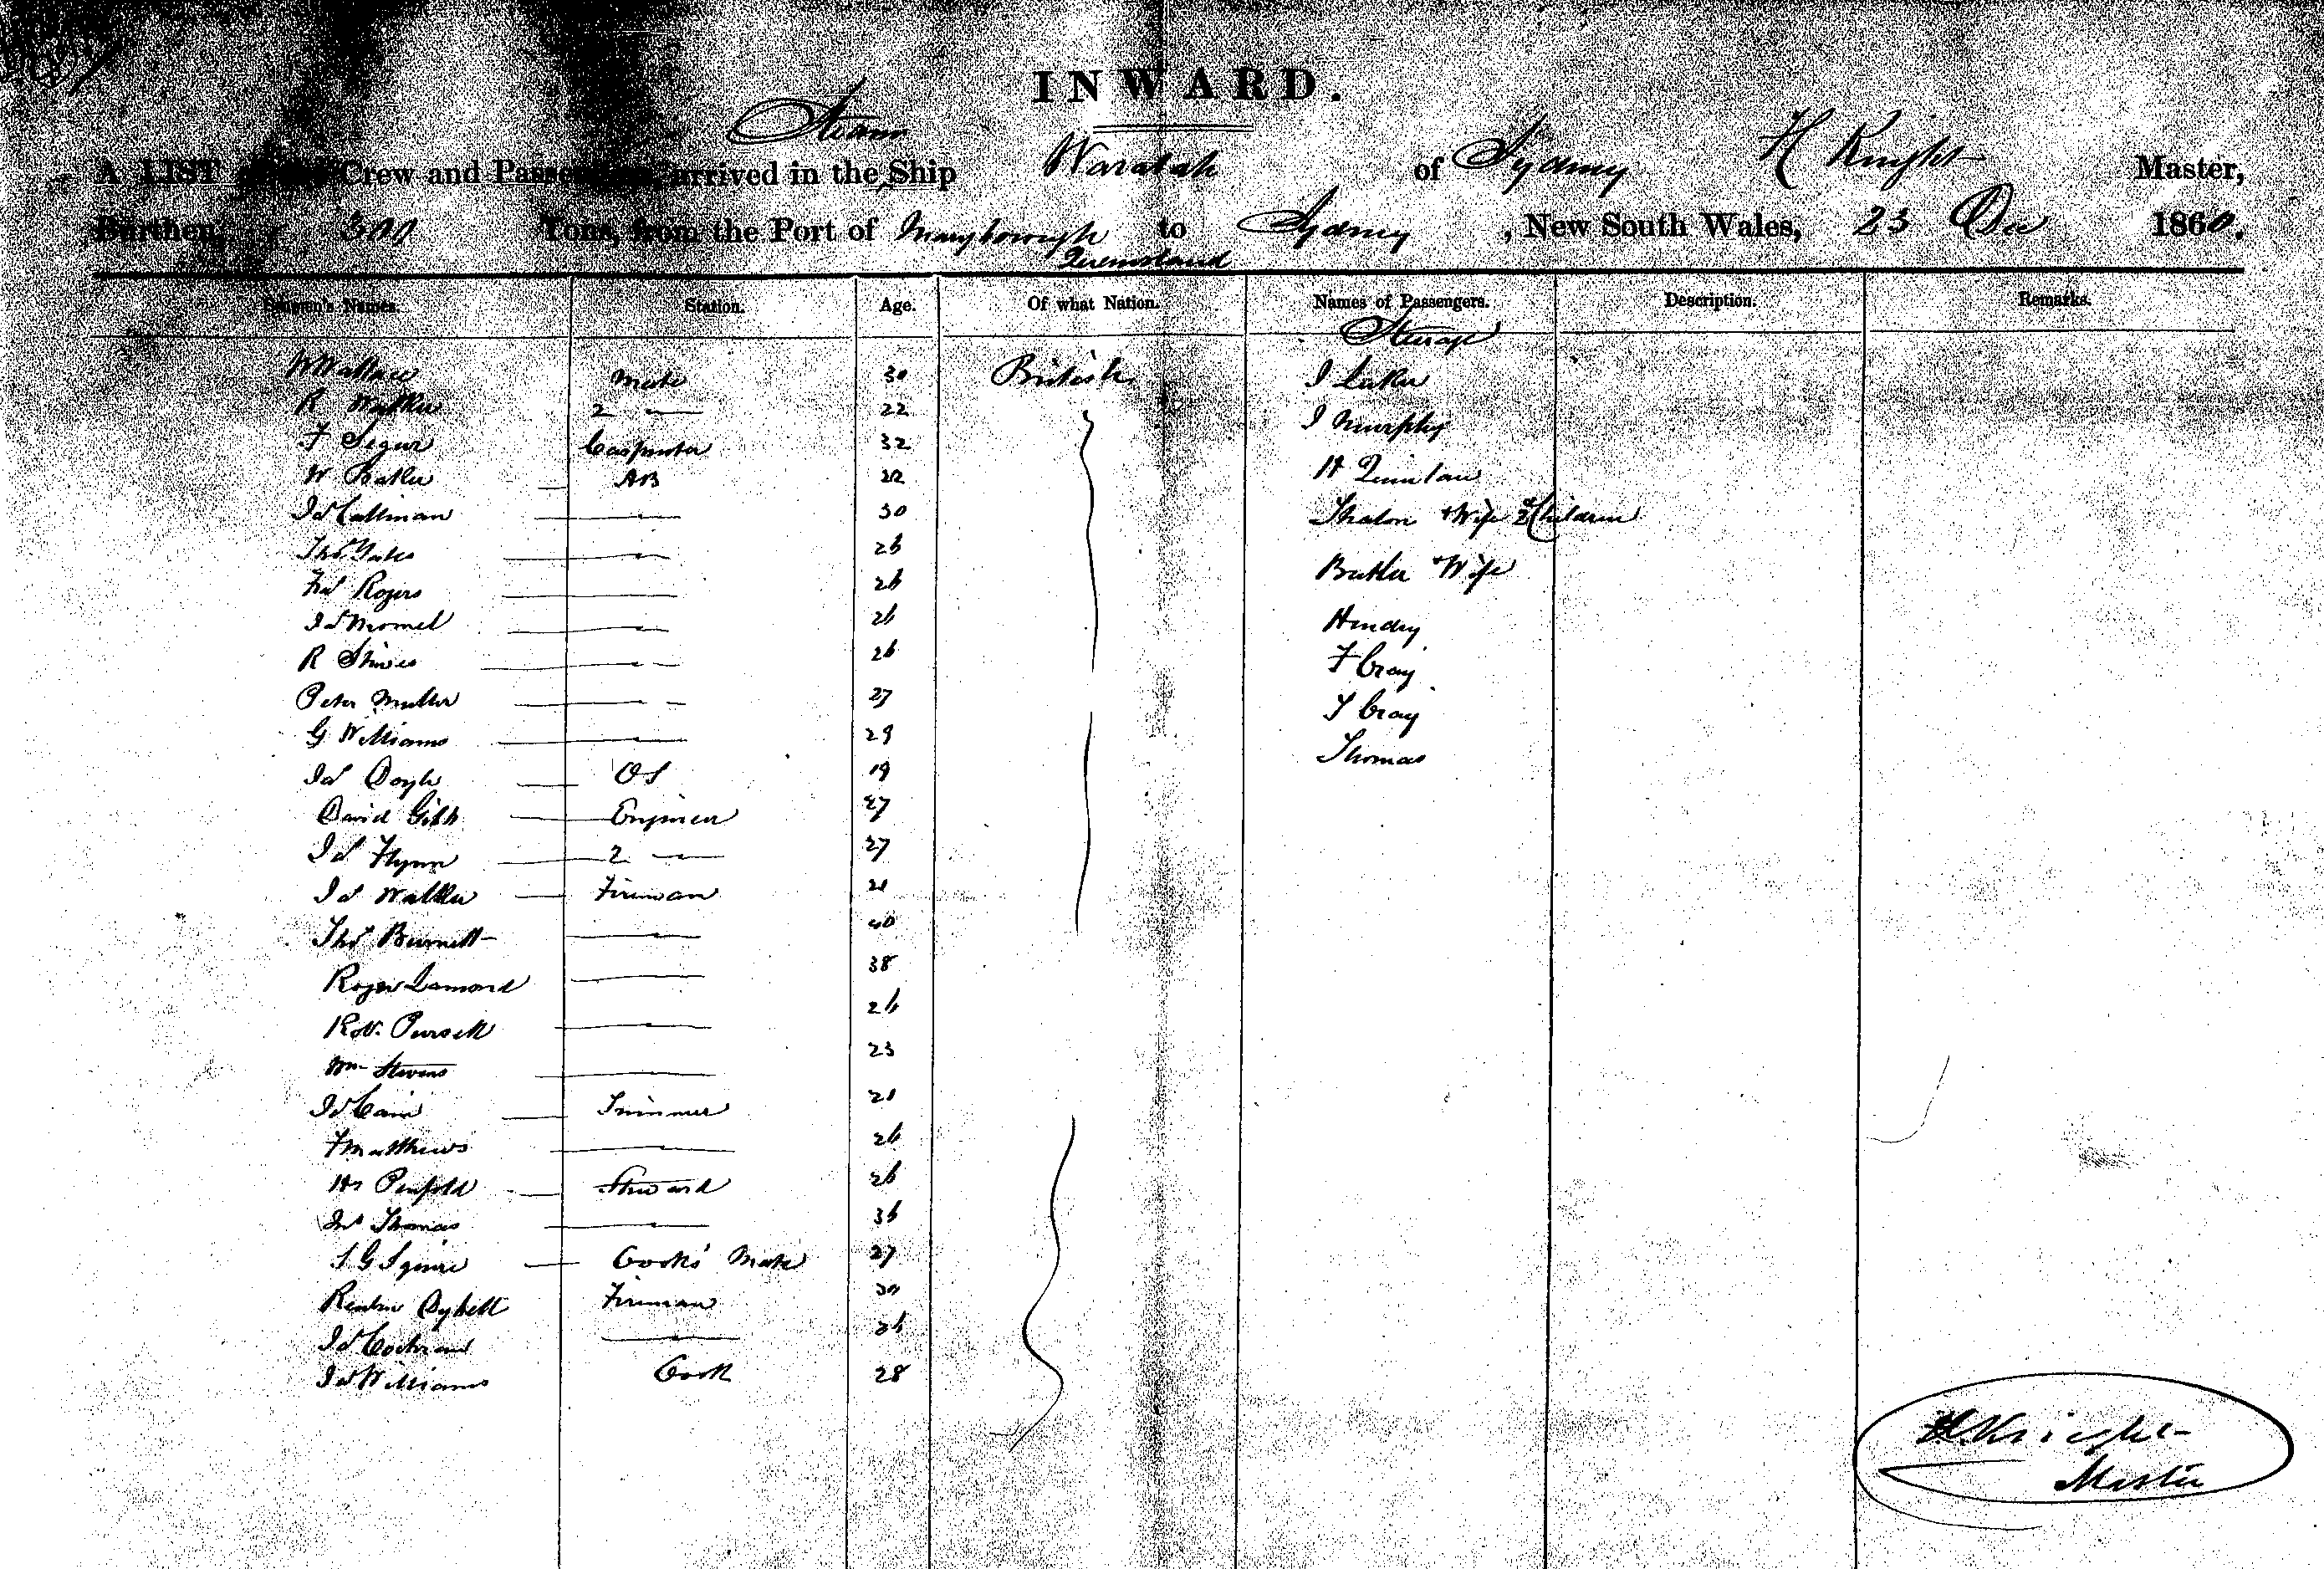 INWARD.
Steam
A LIST of the Crew and Passengers arrived in the Ship Waratah of Sydney H Knight Master,
Burthen, 300 Tons, from the Port of Maryborough to Sydney, New South Wales, 23 Dec 1860.
Queensland
Seamen's Names. Station. Age. Of what Nation. Names of Passengers. Description. Remarks.
Steerage
W Wallace Mate 30 British
R Walker 2 — 22
F Segur Carpenter 32
W Butler — AB 22
Js Callman — 30
Thos Yates — 26
Rogers — 26
Js — 26
R — 26
Peter Muller — 27
G Williams — 29
Js Doyle — OS 19
David Gibb — Engineer 27
Js Flynn — 2 — 27
Js Walker — Fireman 21
Thos Burnett — 40
Roger Lamond — 38
Robt. Pursell — 26
Wm Stevens — 23
Js Cain — Trimmer 21
F Matthews — 26
Hy Penfold — Steward 26
Jno Thomas — 36
S G Squire — Cooks' Mate 27
Reuben Fireman 30
Js Cochran — 26
Js Williams Cook 28
J
J Murphy
H Quinlan
& Wife & 2 Children
Butler & Wife
Hendry
F Cray
T Cray
Thomas
H Knight
Master